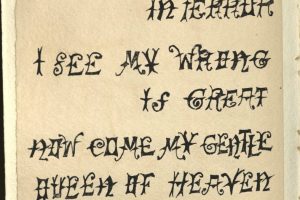 IN ERROR
I SEE MY WRONG
IS GREAT
NOW COME MY GENTLE
QUEEN OF HEAVEN